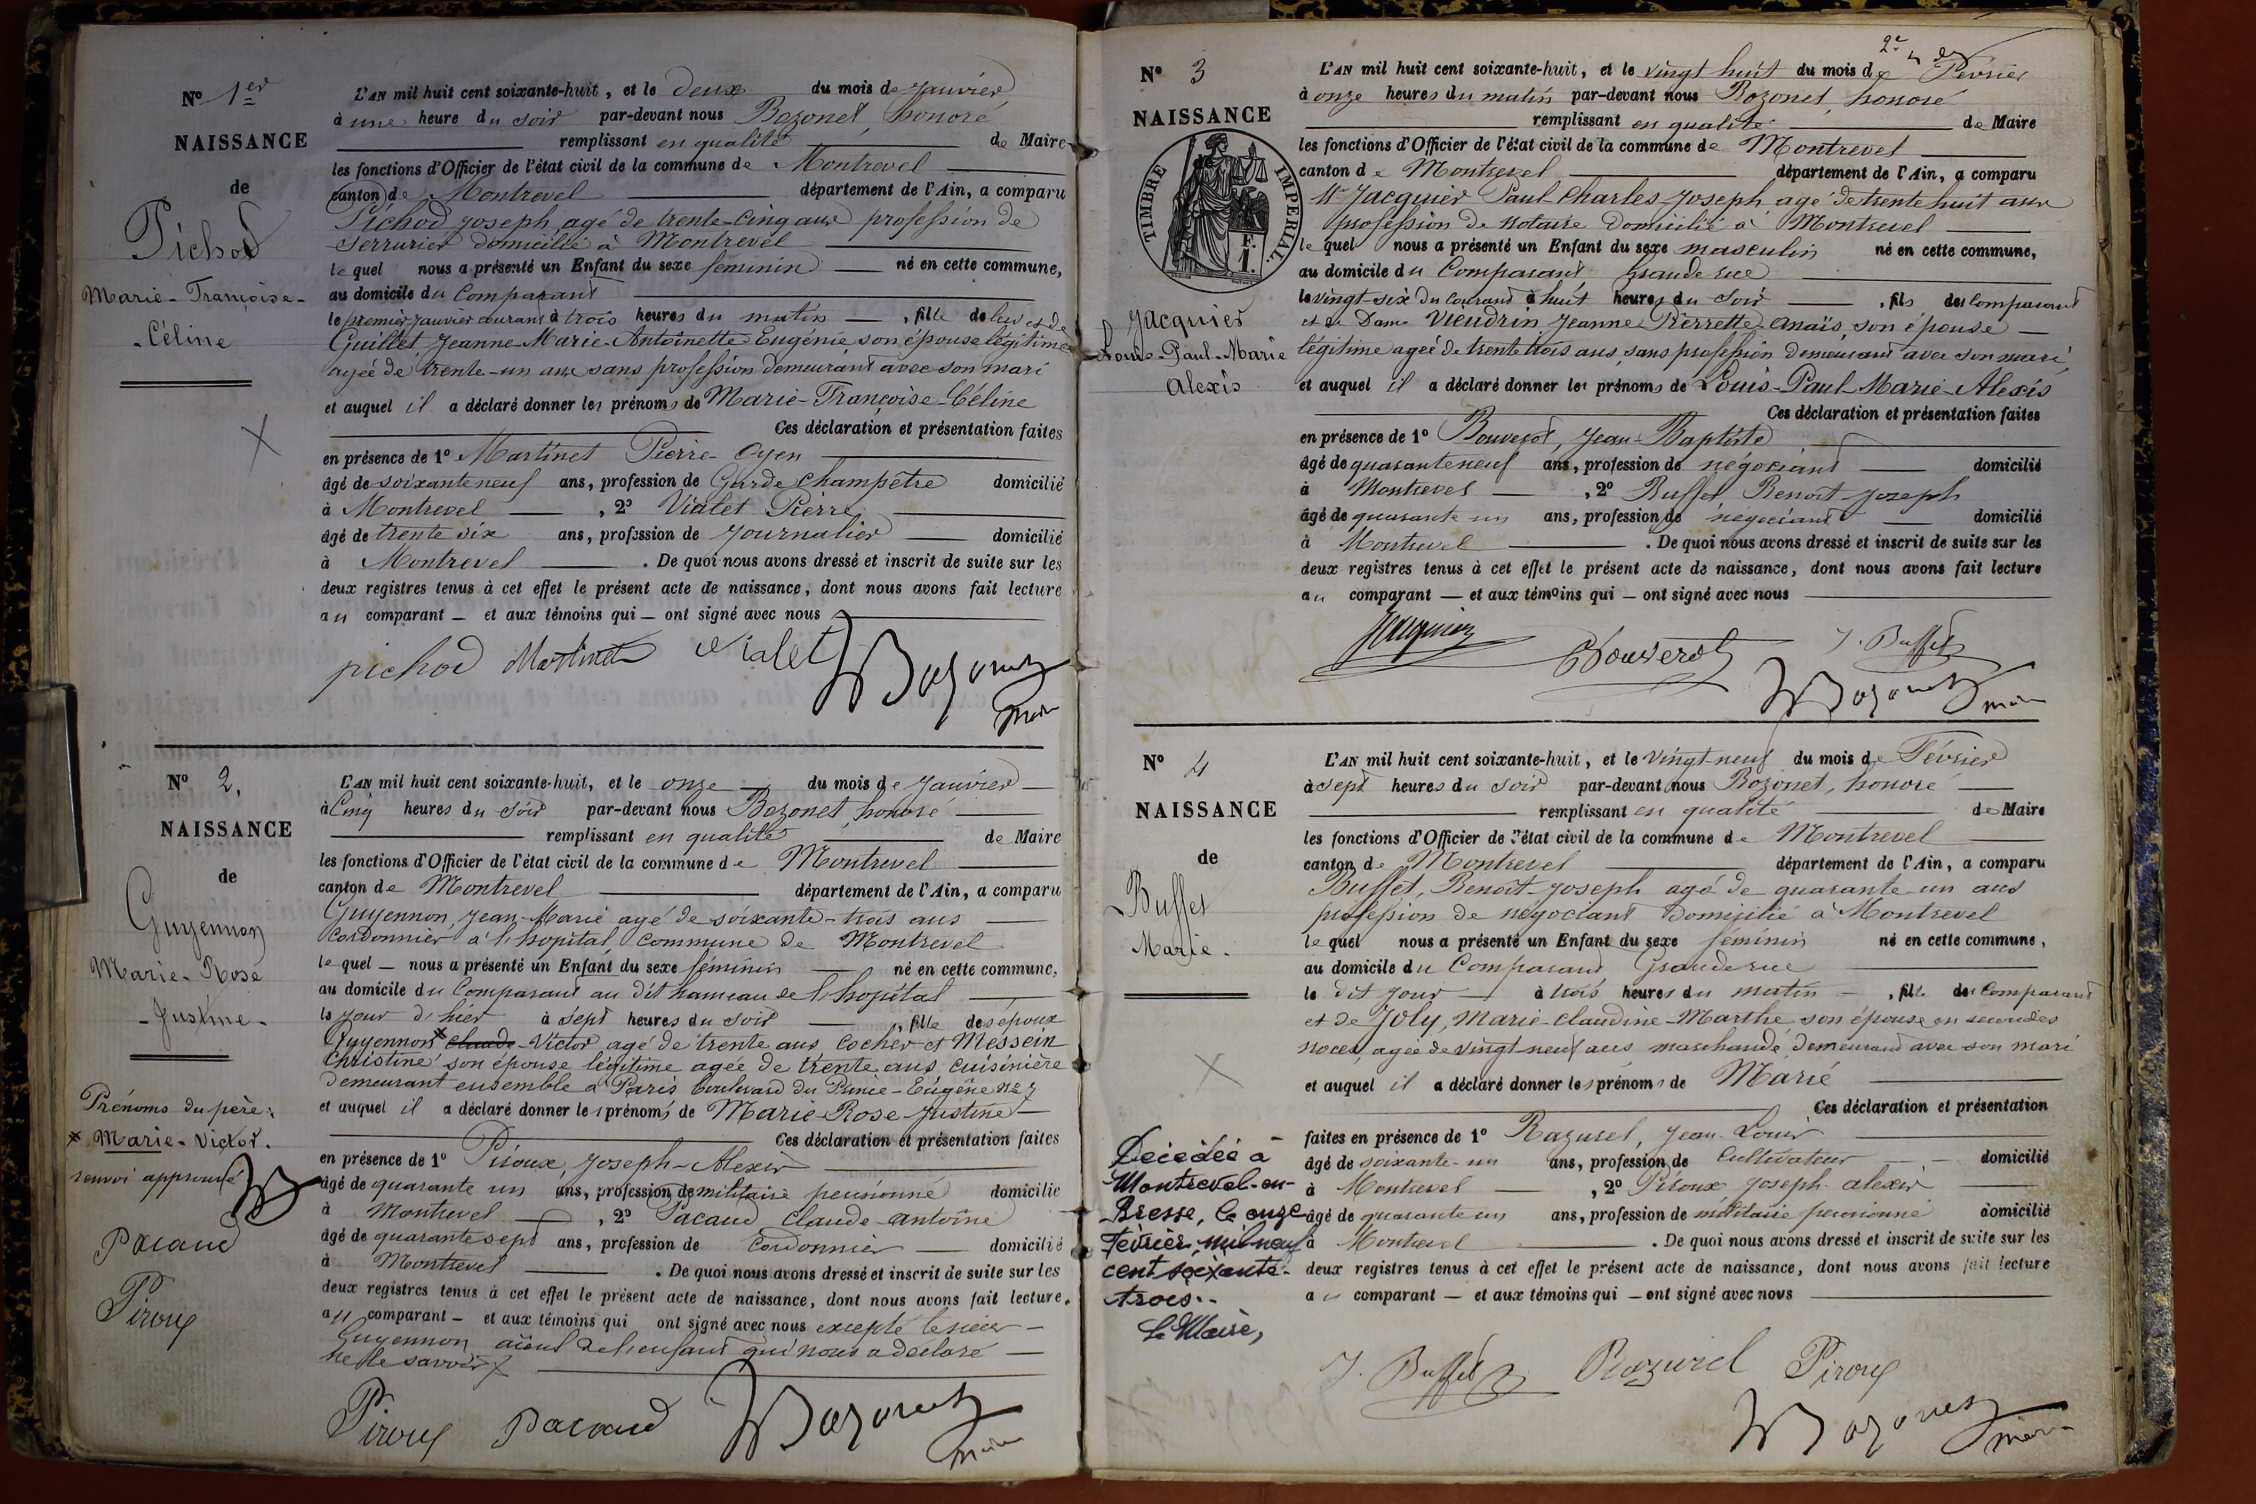 Nº 1er
NAISSANCE
de
Pichod
Marie-Françoise-
-Céline
L'AN mil huit cent soixante-huit, et le deux du mois de Janvier
à une heure du soir par-devant nous Bozonet, honoré
remplissant en qualité de Maire
les fonctions d'Officier de l'état civil de la commune de Montrevel
canton de Montrevel département de l'Ain, a comparu
Pichod joseph, agé de trente-cinq ans profession de
serrurier domicilié à Montrevel
lequel nous a présenté un Enfant du sexe féminin né en cette commune,
au domicile du Comparant
le premier janvier courant à trois heures du matin, fille de lui et de
Guillet Jeanne-Marie-Antoinette-Eugénie, son épouse légitime
agée de trente-un ans sans profession demeurant avec son mari
et auquel il a déclaré donner les prénoms de Marie-Françoise-Céline
Ces déclaration et présentation faites
en présence de 1º Martinet Pierre-Oyen
âgé de soixante neuf ans, profession de Garde champêtre domicilié
à Montrevel, 2º Vialet Pierre
âgé de trente six ans, profession de Journalier domicilié
à Montrevel. De quoi nous avons dressé et inscrit de suite sur les
deux registres tenus à cet effet le présent acte de naissance, dont nous avons fait lecture
au comparant — et aux témoins qui — ont signé avec nous
pichod Martinet Vialet Bozonet
maire
Nº 2,
NAISSANCE
de
Guyennon
Marie-Rose
-Justine-
Prénoms du père:
x Marie-Victor.
renvoi approuvé
Pacaud
Piroux
L'AN mil huit cent soixante-huit, et le onze du mois de Janvier
à Cinq heures du soir par-devant nous Bozonet, honoré
remplissant en qualité de Maire
les fonctions d'Officier de l'état civil de la commune de Montrevel
canton de Montrevel département de l'Ain, a comparu
Guyennon, Jean-Marie agé de soixante-trois ans
cordonnier à l'hopital, commune de Montrevel
lequel — nous a présenté un Enfant du sexe féminin né en cette commune,
au domicile du Comparant au dit hameau de l'hopital
le jour d'hier à sept heures du soir, fille des époux
Guyennon x Claude-Victor agé de trente ans cocher et Messein
Christine son épouse légitime agée de trente ans cuisinière
demeurant ensemble à Paris boulevard du Prince-Eugène nº 7
et auquel il a déclaré donner les prénoms de Marie-Rose-Justine
Ces déclaration et présentation faites
en présence de 1º Piroux, Joseph-Alexis
âgé de quarante un ans, profession de militaire pensionné domicilié
à Montrevel, 2º Pacaud Claude-Antoine
âgé de quarante sept ans, profession de Cordonnier domicilié
à Montrevel. De quoi nous avons dressé et inscrit de suite sur les
deux registres tenus à cet effet le présent acte de naissance, dont nous avons fait lecture.
au comparant — et aux témoins qui ont signé avec nous excepté le sieur
Guyennon aïeul de l'enfant qui nous a déclaré
ne le savoir
Piroux Pacaud Bozonet
maire
Nº 3
NAISSANCE
TIMBRE IMPERIAL.
F.
1.
Jacquier
Louis-Paul-Marie
Alexis
L'AN mil huit cent soixante-huit, et le vingt huit du mois de Février
à onze heures du matin par-devant nous Bozonet, honoré
remplissant en qualité de Maire
les fonctions d'Officier de l'état civil de la commune de Montrevel
canton de Montrevel département de l'Ain, a comparu
Mr Jacquier Paul-Charles-Joseph agé de trente huit ans
profession de notaire Domicilié à Montrevel
lequel nous a présenté un Enfant du sexe masculin né en cette commune,
au domicile du Comparant, Grande rue
le vingt-six du courant à huit heures du soir, fils du Comparant
et de Dame Vieudrin Jeanne-Pierrette-Anaïs, son épouse
légitime agée de trente trois ans, sans profession demeurant avec son mari,
et auquel il a déclaré donner les prénoms de Louis-Paul-Marie-Alexis
Ces déclaration et présentation faites
en présence de 1º Bouverot, Jean-Baptiste
âgé de quarante neuf ans, profession de négociant domicilié
à Montrevel, 2º Buffet Benoît-Joseph
âgé de quarante un ans, profession de négociant domicilié
à Montrevel. De quoi nous avons dressé et inscrit de suite sur les
deux registres tenus à cet effet le présent acte de naissance, dont nous avons fait lecture
au comparant — et aux témoins qui — ont signé avec nous
Jacquier Bouverot J. Buffet
Bozonet maire
Nº 4
NAISSANCE
de
Buffet
Marie.
Décédée à
Montrevel-en-
Bresse, le onze
février mil neuf
cent soixante-
trois.
Le Maire,
L'AN mil huit cent soixante-huit, et le vingt-neuf du mois de Février
à sept heures du soir par-devant nous Bozonet, honoré
remplissant en qualité de Maire
les fonctions d'Officier de l'état civil de la commune de Montrevel
canton de Montrevel département de l'Ain, a comparu
Buffet, Benoît-Joseph agé de quarante un ans
profession de négociant domicilié à Montrevel
lequel nous a présenté un Enfant du sexe féminin né en cette commune,
au domicile du Comparant Grande rue
le dit jour à trois heures du matin, fille du Comparant
et de Joly, Marie-Claudine-Marthe, son épouse en secondes
noces, agée de vingt-neuf ans marchande demeurant avec son mari
et auquel il a déclaré donner les prénoms de Marie
Ces déclaration et présentation
faites en présence de 1º Razurel, Jean-Louis
âgé de soixante-un ans, profession de Cultivateur domicilié
à Montrevel, 2º Piroux Joseph-alexis
âgé de quarante un ans, profession de militaire pensionné domicilié
à Montrevel. De quoi nous avons dressé et inscrit de suite sur les
deux registres tenus à cet effet le présent acte de naissance, dont nous avons fait lecture
au comparant — et aux témoins qui — ont signé avec nous
J. Buffet Razurel Piroux
Bozonet
maire